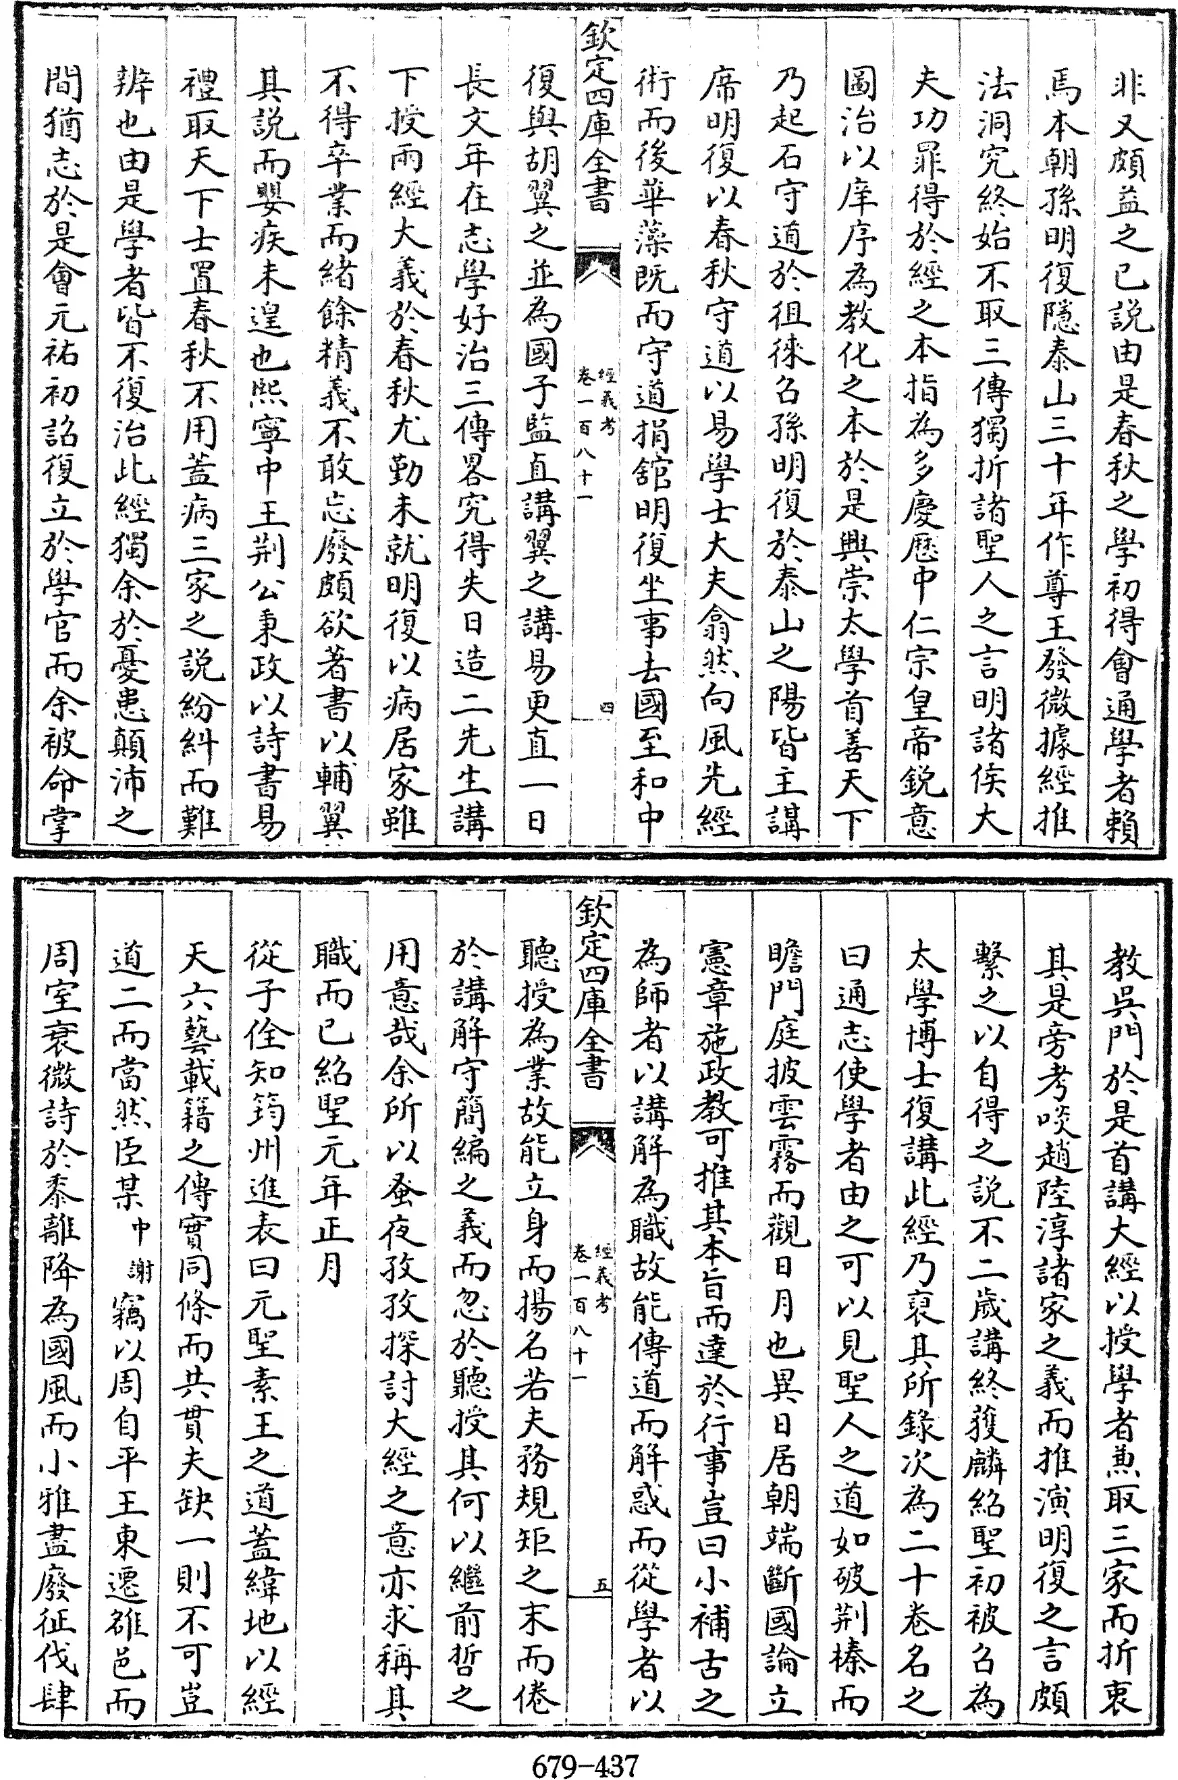 非又頗益之已説由是春秋之學初得會通學者賴
焉本朝孫明復隱泰山三十年作尊王發微據經推
法洞究終始不取三傳獨折諸聖人之言明諸侯大
夫功罪得於經之本指為多慶歴中仁宗皇帝銳意
圖治以庠序為教化之本於是興崇太學首善天下
乃起石守道於徂徠召孫明復於泰山之陽皆主講
席明復以春秋守道以易學士大夫翕然向風先經
術而後華藻既而守道捐舘明復坐事去國至和中
欽定四庫全書
經義考
卷一百八十一
四
復與胡翼之並為國子監直講翼之講易更直一日
長文年在志學好治三傳畧究得失日造二先生講
下授兩經大義於春秋尤勤未就明復以病居家雖
不得卒業而緒餘精義不敢忘廢頗欲著書以輔翼
其説而嬰疾未遑也熙寧中王荆公秉政以詩書易
禮取天下士置春秋不用蓋病三家之説紛糾而難
辨也由是學者皆不復治此經獨余於憂患顛沛之
間猶志於是會元祐初詔復立於學官而余被命掌
教吳門於是首講大經以授學者兼取三家而折衷
其是旁考啖趙陸淳諸家之義而推演明復之言頗
繫之以自得之説不二歲講終獲麟紹聖初被召為
太學博士復講此經乃裒其所錄次為二十卷名之
曰通志使學者由之可以見聖人之道如破荆榛而
瞻門庭披雲霧而觀日月也異日居朝端斷國論立
憲章施政教可推其本旨而達於行事豈曰小補古之
為師者以講解為職故能傳道而解惑而從學者以
欽定四庫全書
經義考
卷一百八十一
五
聽授為業故能立身而揚名若夫務規矩之末而倦
於講解守簡編之義而忽於聽授其何以繼前哲之
用意哉余所以蚤夜孜孜探討大經之意亦求稱其
職而已紹聖元年正月
從子佺知筠州進表曰元聖素王之道蓋緯地以經
天六藝載籍之傳實同條而共貫夫缺一則不可豈
道二而當然臣某中謝竊以周自平王東遷雒邑而
周室衰微詩於黍離降為國風而小雅盡廢征伐肆
679-437